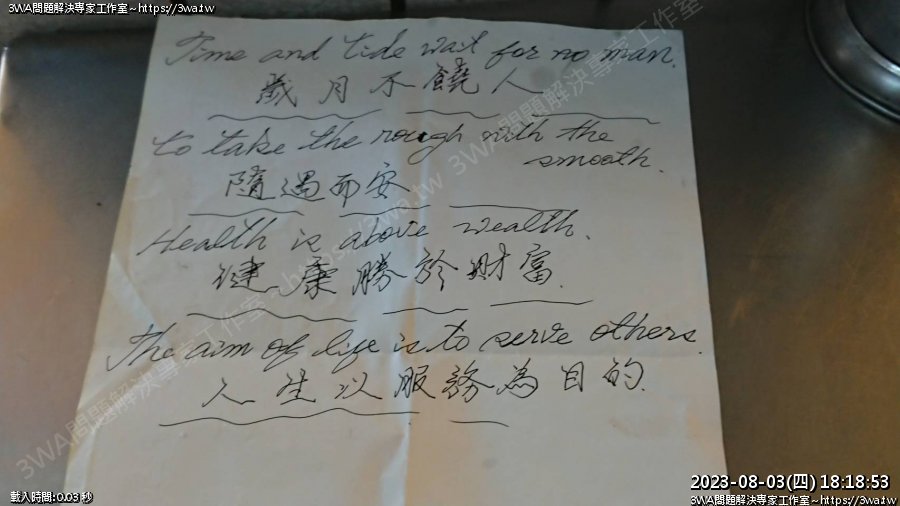 3WA問題解決專家工作室~https://3wa.tw
3WA問題解決專家工作室~https://3wa.tw
Time and tide wait for no man.
歲月不饒人
to take the rough with the
smooth.
隨遇而安
Health is above wealth.
健康勝於財富.
The aim of life is to serve others.
人生以服務為目的.
3WA問題解決專家工作室~https://3wa.tw
2023-08-03(四) 18:18:53
載入時間:0.03 秒
3WA問題解決專家工作室~https://3wa.tw